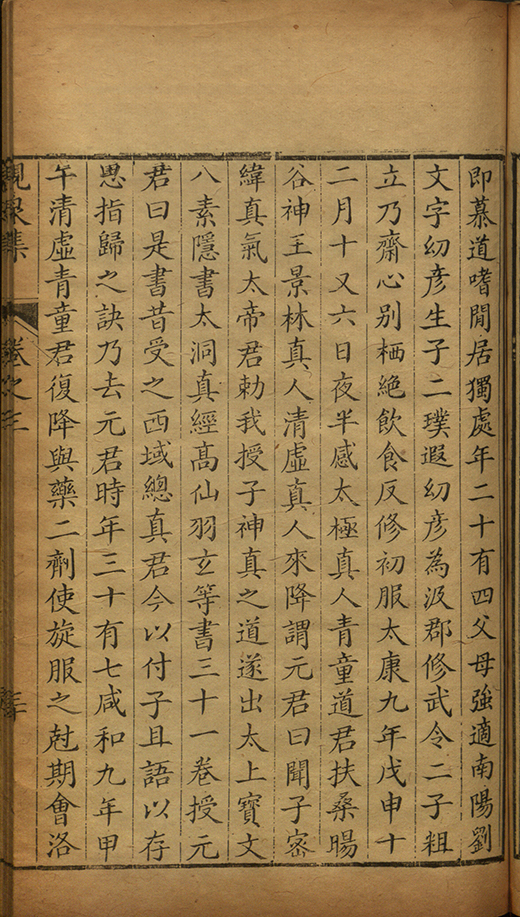 即慕道嗜閒居獨處年二十有四父母強適南陽劉
文字幻彦生子二璞遐幻彦為汲郡修武令二子粗
立乃齋心别栖絶飲食反修初服太康九年戊申十
二月十又六日夜半感太極真人青童道君扶桑暘
谷神王景林真人清虚真人來降謂元君曰聞子密
緯真氣太帝君勅我授子神真之道遂出太上寶文
八素隱書太洞真經髙仙羽玄等書三十一卷授元
君曰是書昔受之西域總真君今以付子且語以存
思指歸之訣乃去元君時年三十有七咸和九年甲
午清虚青童君復降與藥二劑使旋服之尅期會洛
卷之三